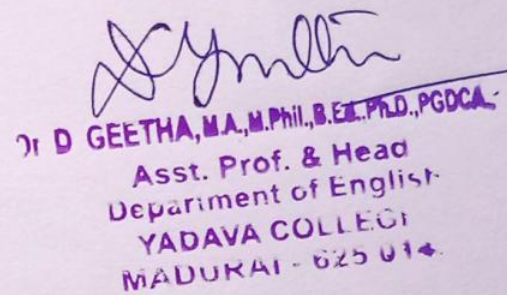 Dr D GEETHA, M.A., M.Phil., B.Ed., Ph.D., PGDCA.,
Asst. Prof. & Head
Department of English
YADAVA COLLEGE
MADURAI - 625 014.